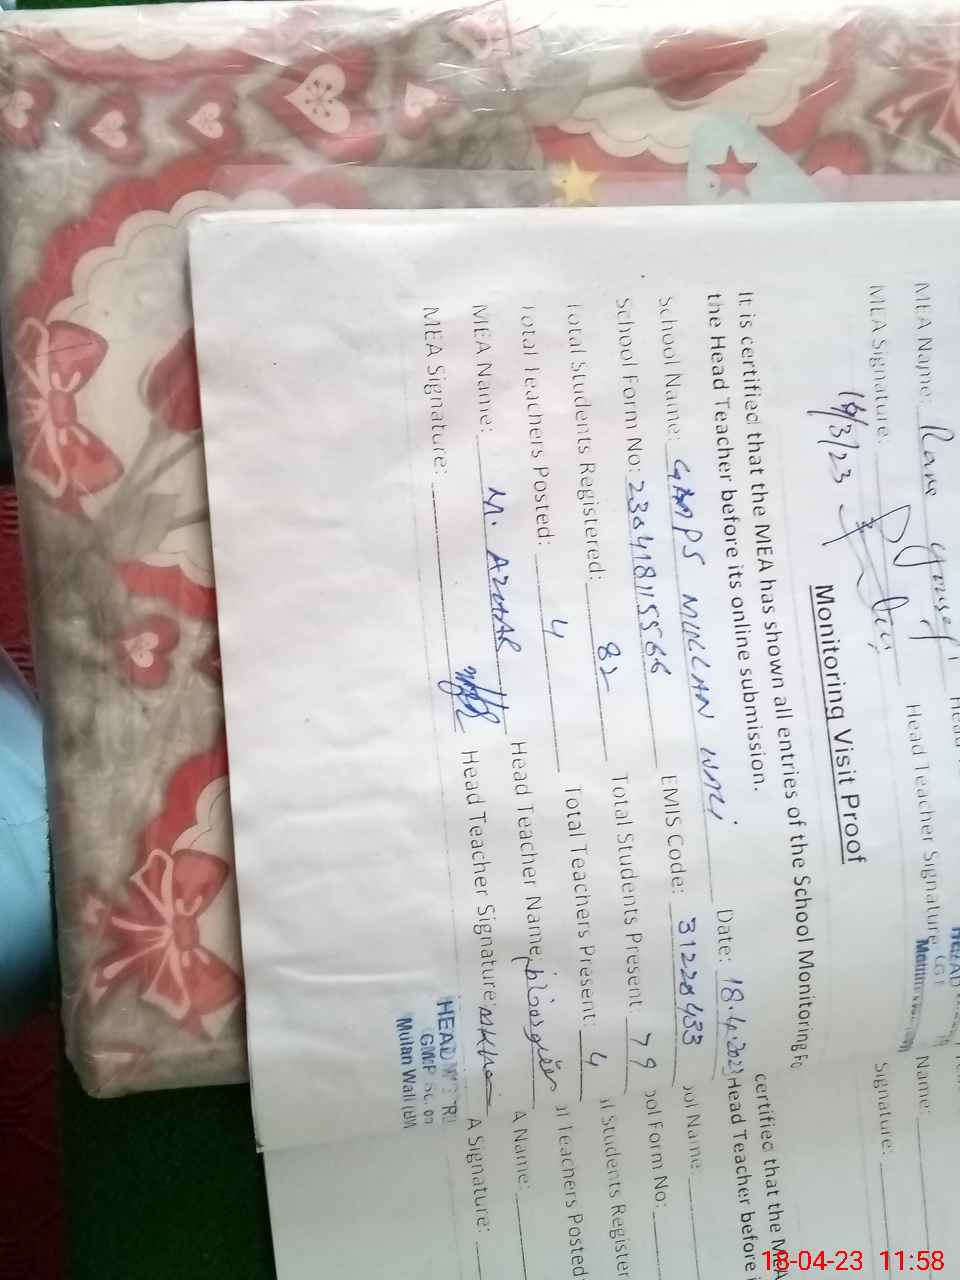 MEA Name: Rana
MEA Signature: Head Teacher Signature
Monitoring Visit Proof
It is certified that the MEA has shown all entries of the School Monitoring Fo
the Head Teacher before its online submission.
School Name: GMMPS MULLAN WALI Date: 18.4.2023
School Form No: EMIS Code: 31228433
Total Students Registered: 82 Total Students Present: 79
Total Teachers Posted: 4 Total Teachers Present: 4
MEA Name: M. AZHAR Head Teacher Name:
MEA Signature: Head Teacher Signature:
HEAD
Mulan Wali (BW
Name:
Signature:
certified that the MEA
Head Teacher before i
ool Name:
ool Form No:
al Students Register
al Teachers Posted
A Name:
A Signature:
18-04-23 11:58